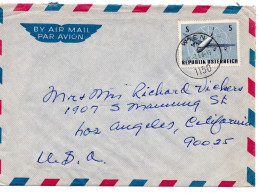 BY AIR MAIL
PAR AVION
WIEN
1150
S 5
REPUBLIK ÖSTERREICH
Mrs + Mrs Richard Vickers
1907 S Manning St
Los Angeles, California
90025
U.S.A.